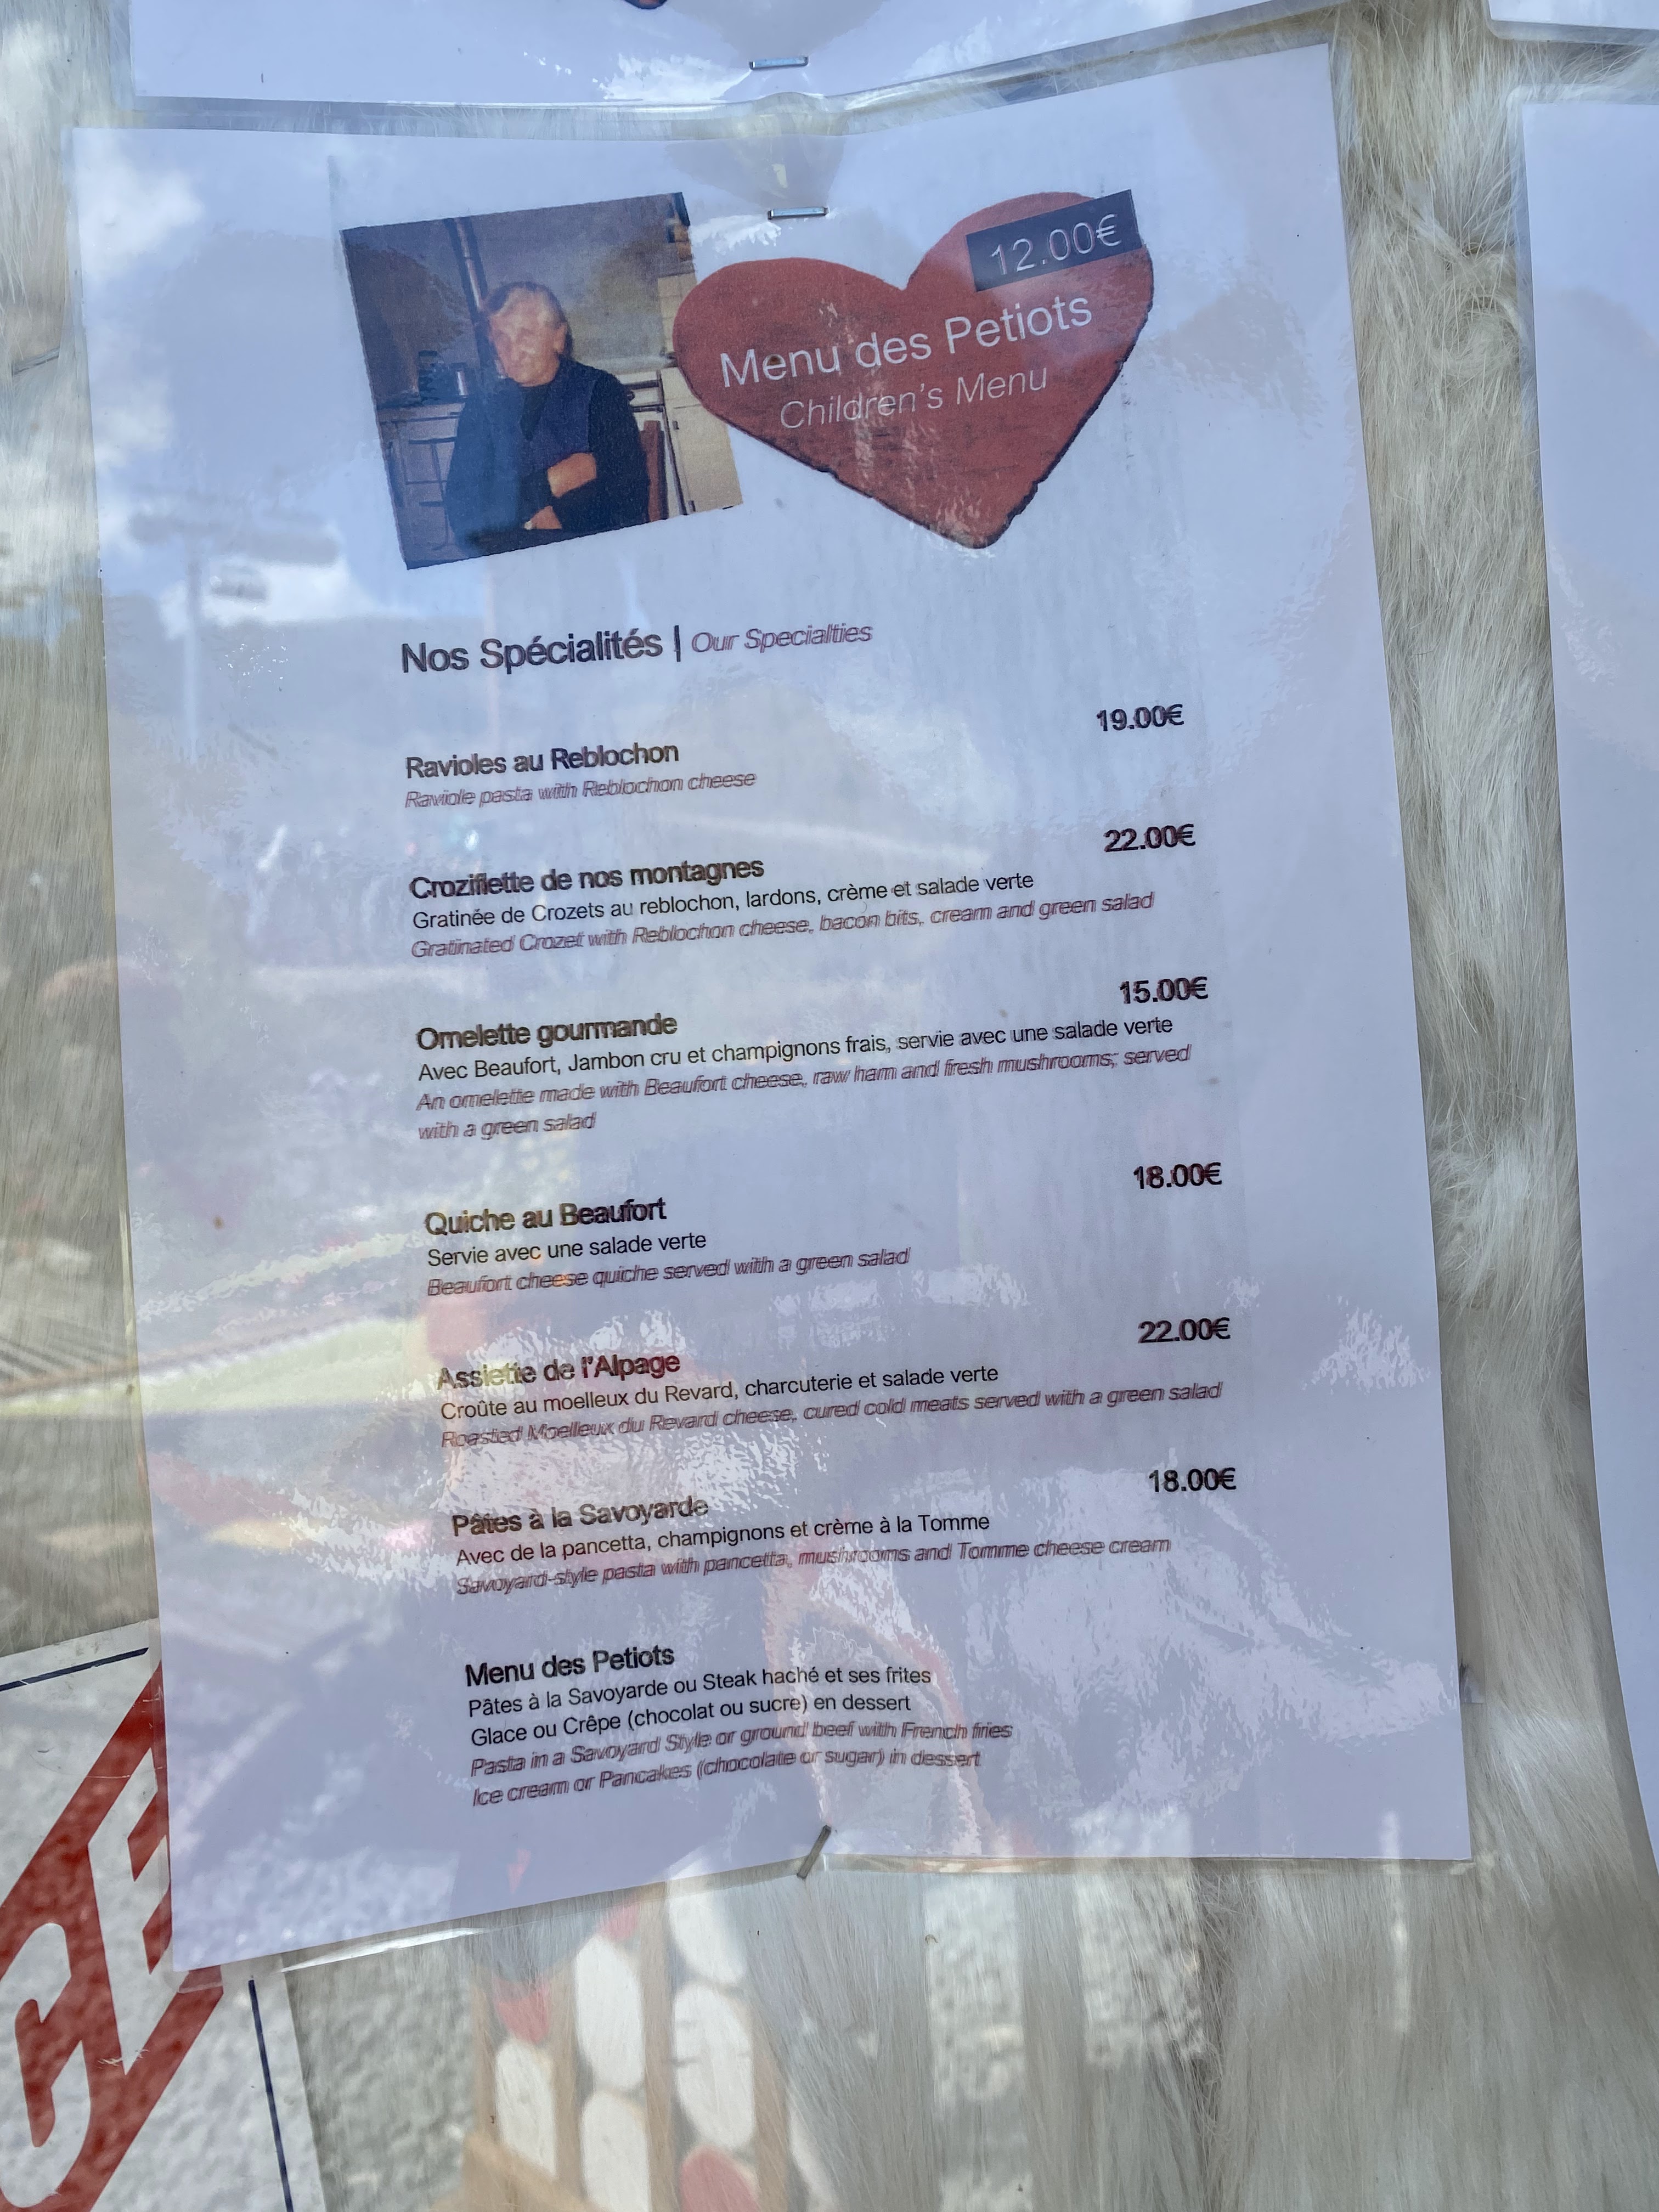 12.00€
Menu des Petiots
Children's Menu
Nos Spécialités | Our Specialties
19.00€
Ravioles au Reblochon
Raviole pasta with Reblochon cheese
22.00€
Croziflette de nos montagnes
Gratinée de Crozets au reblochon, lardons, crème et salade verte
Gratinated Crozet with Reblochon cheese, bacon bits, cream and green salad
15.00€
Omelette gourmande
Avec Beaufort, Jambon cru et champignons frais, servie avec une salade verte
An omelette made with Beaufort cheese, raw ham and fresh mushrooms; served
with a green salad
18.00€
Quiche au Beaufort
Servie avec une salade verte
Beaufort cheese quiche served with a green salad
22.00€
Assiette de l'Alpage
Croûte au moelleux du Revard, charcuterie et salade verte
Roasted Moelleux du Revard cheese, cured cold meats served with a green salad
18.00€
Pâtes à la Savoyarde
Avec de la pancetta, champignons et crème à la Tomme
Savoyard-style pasta with pancetta, mushrooms and Tomme cheese cream
Menu des Petiots
Pâtes à la Savoyarde ou Steak haché et ses frites
Glace ou Crêpe (chocolat ou sucre) en dessert
Pasta in a Savoyard Style or ground beef with French fries
Ice cream or Pancakes (chocolate or sugar) in dessert